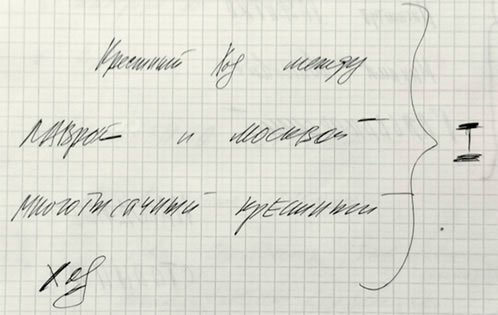 Крестный ход между
Лаврой и Москвой
многотысячный крестный
ход
I